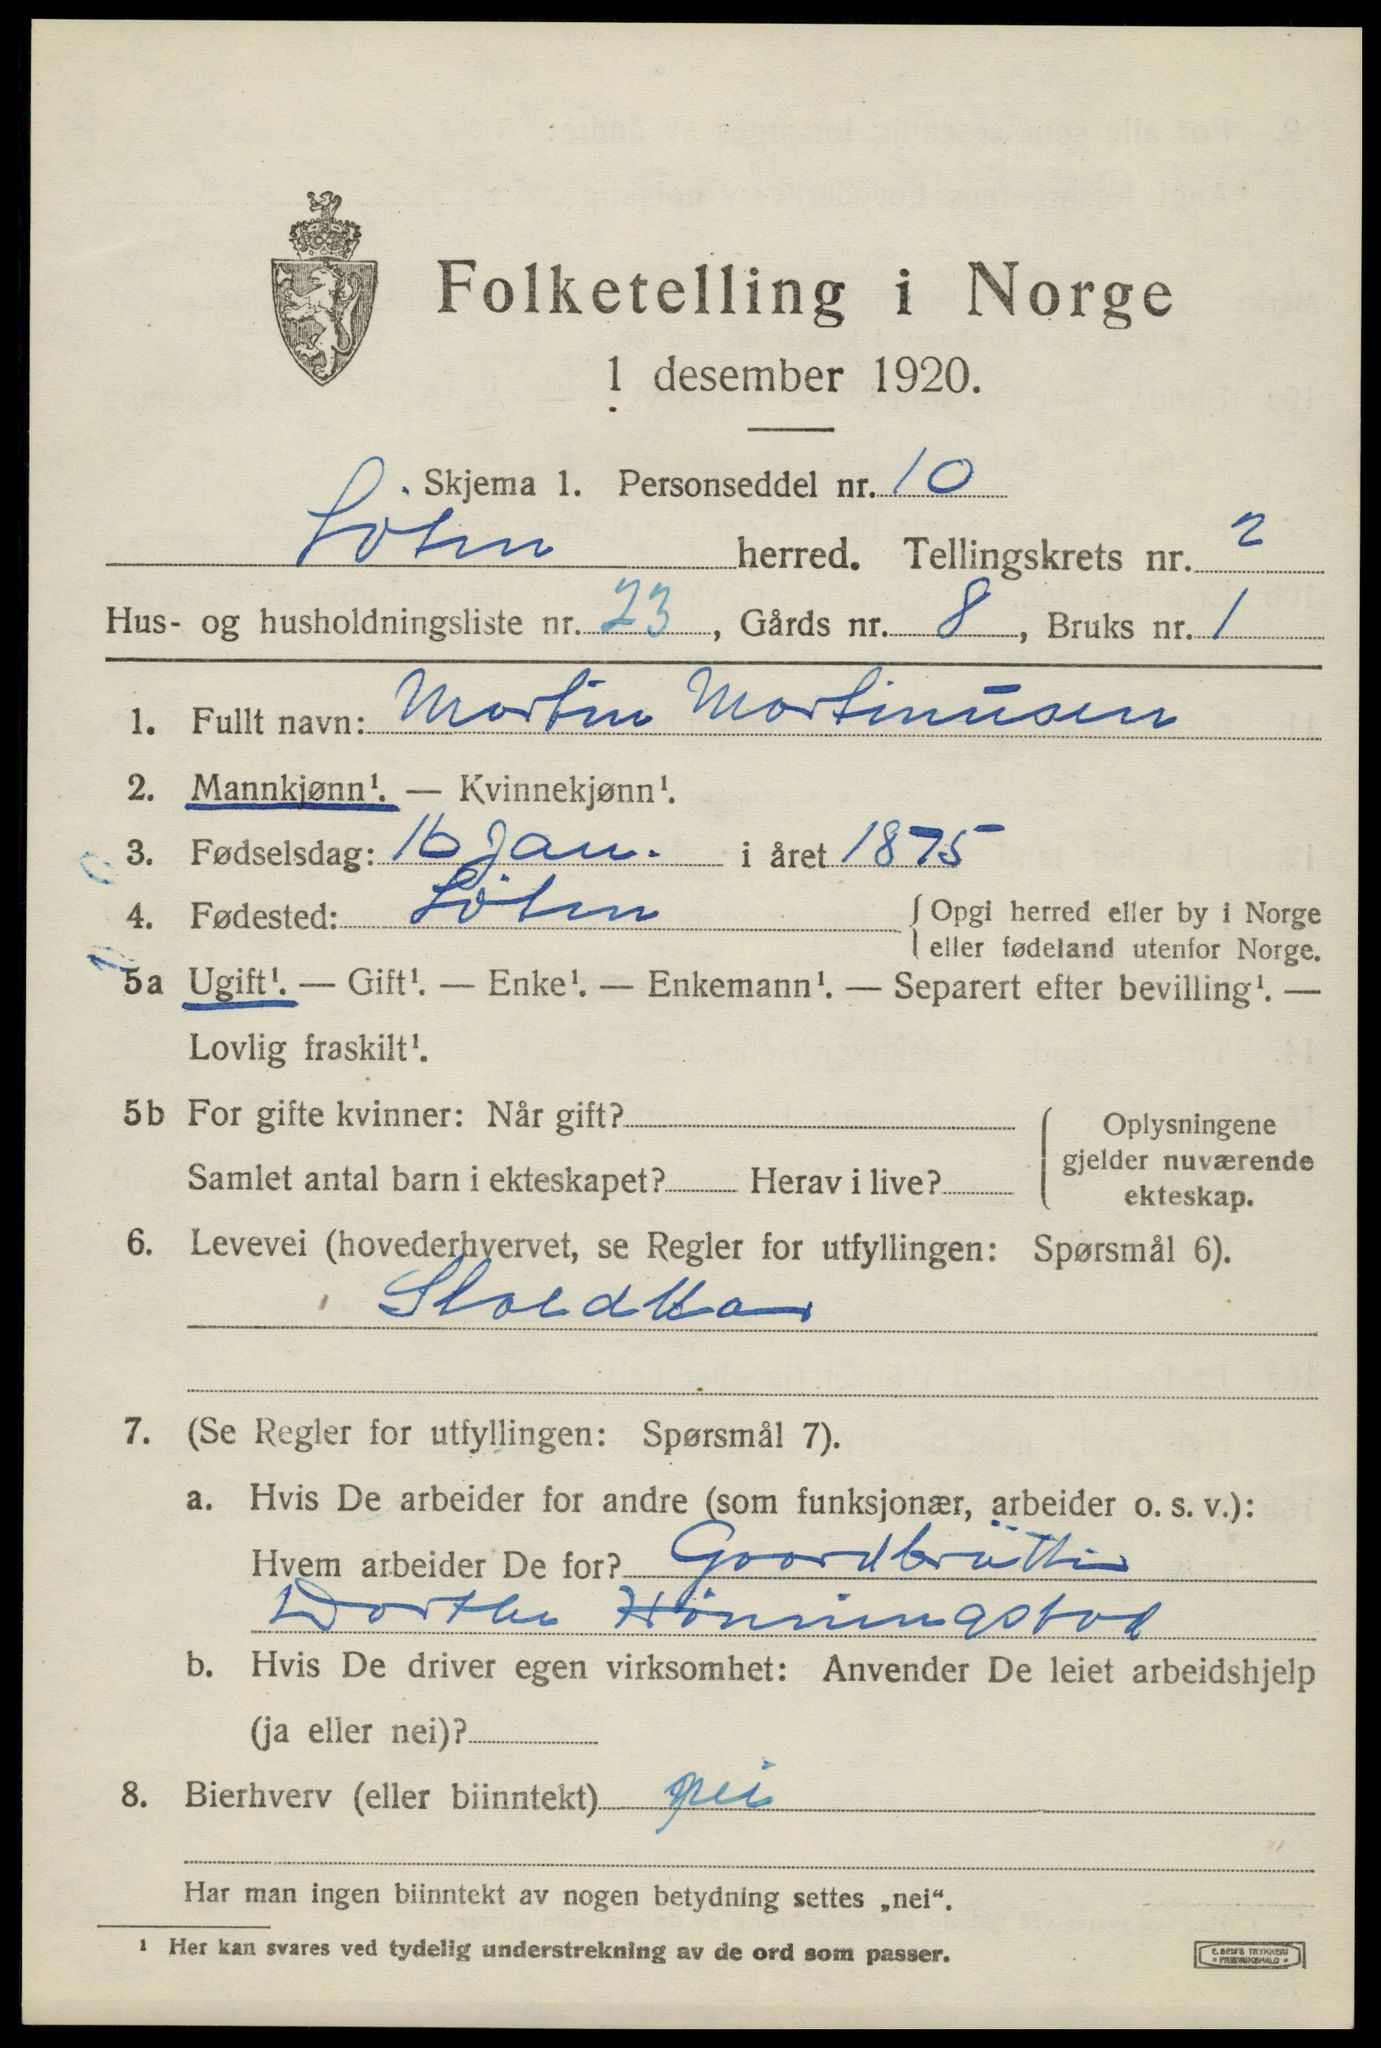 Folketelling i Norge
1 desember 1920.
Skjema 1. Personseddel nr. 10
Löten herred. Tellingskrets nr. 2
Hus- og husholdningsliste nr. 23, Gårds nr. 8, Bruks nr. 1
1. Fullt navn: Martin Martinüsen
2. Mannkjønn¹. — Kvinnekjønn¹.
3. Fødselsdag: 16 Jan. i året 1875
4. Fødested: Löten { Opgi herred eller by i Norge
eller fødeland utenfor Norge.
5a Ugift¹. — Gift¹. — Enke¹. — Enkemann¹. — Separert efter bevilling¹. —
Lovlig fraskilt¹.
5b For gifte kvinner: Når gift?
Samlet antal barn i ekteskapet? Herav i live?
Oplysningene
gjelder nuværende
ekteskap.
6. Levevei (hovederhvervet, se Regler for utfyllingen: Spørsmål 6).
7. (Se Regler for utfyllingen: Spørsmål 7).
a. Hvis De arbeider for andre (som funksjonær, arbeider o. s. v.):
Hvem arbeider De for?
Dorthe Hönningstad
b. Hvis De driver egen virksomhet: Anvender De leiet arbeidshjelp
(ja eller nei)?
8. Bierhverv (eller biinntekt) nei
Har man ingen biinntekt av nogen betydning settes „nei“.
¹ Her kan svares ved tydelig understrekning av de ord som passer.
E. SEM'S TRYKKERI
• FREDRIKSHALD •